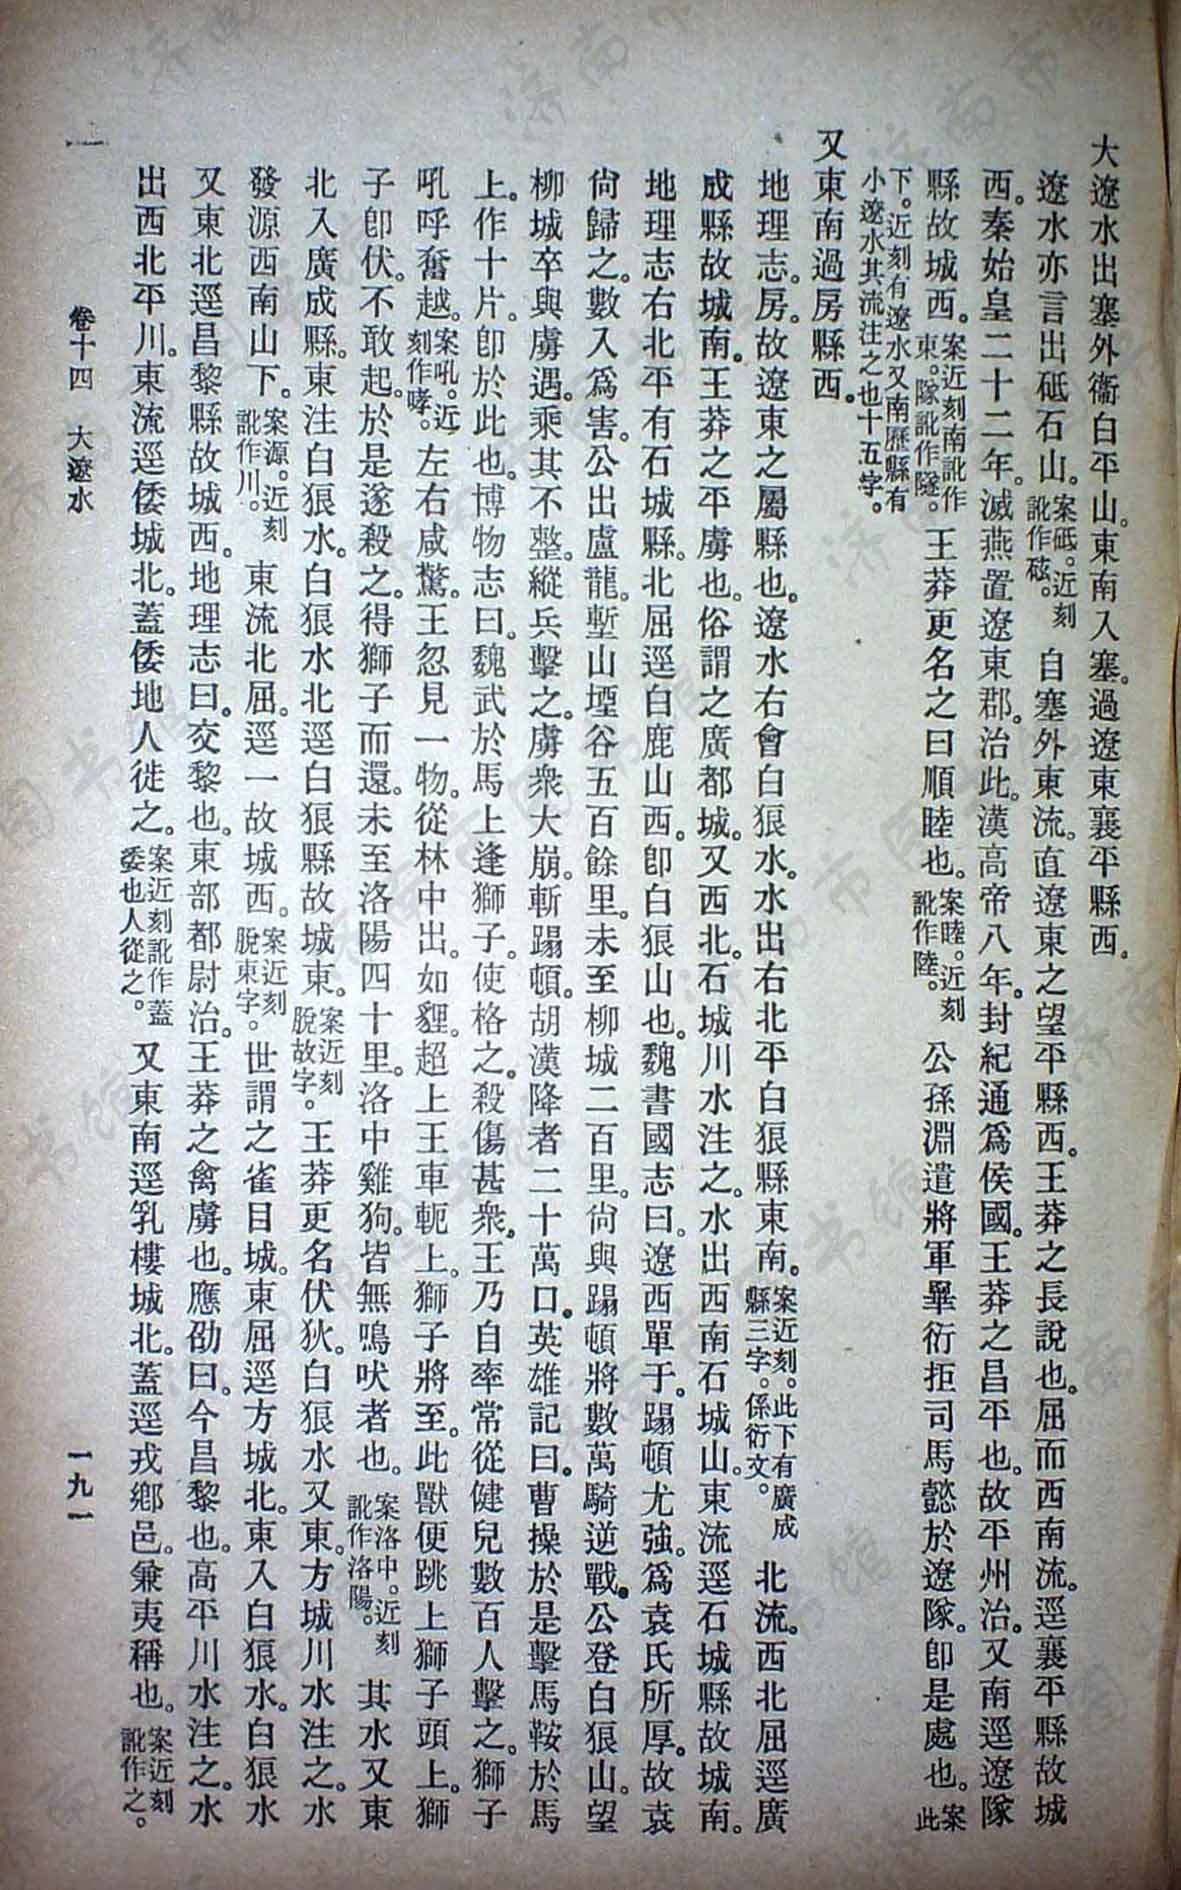 大遼水出塞外衞白平山。東南入塞。過遼東襄平縣西。
遼水亦言出砥石山。案砥。近刻訛作砝。自塞外東流。直遼東之望平縣西。王莽之長說也。屈而西南流。逕襄平縣故城
西。秦始皇二十二年。滅燕置遼東郡。治此。漢高帝八年。封紀通爲侯國。王莽之昌平也。故平州治。又南逕遼隊
縣故城西。案近刻南訛作東。隊訛作隧。王莽更名之曰順睦也。案睦。近刻訛作陸。公孫淵遣將軍畢衍拒司馬懿於遼隊。卽是處也。案此
下。近刻有遼水又南歷縣有小遼水共流注之也十五字。
又東南過房縣西。
地理志。房。故遼東之屬縣也。遼水右會白狼水。水出右北平白狼縣東南。案近刻。此下有廣成縣三字。係衍文。北流。西北屈逕廣
成縣故城南。王莽之平虜也。俗謂之廣都城。又西北。石城川水注之。水出西南石城山。東流逕石城縣故城南。
地理志右北平有石城縣。北屈逕白鹿山西。卽白狼山也。魏書國志曰。遼西單于。蹋頓尤強。爲袁氏所厚。故袁
尙歸之。數入爲害。公出盧龍。塹山堙谷五百餘里。未至柳城二百里。尙與蹋頓將數萬騎逆戰。公登白狼山。望
柳城卒與虜遇。乘其不整。縱兵擊之。虜衆大崩。斬蹋頓。胡漢降者二十萬口。英雄記曰。曹操於是擊馬鞍於馬
上。作十片。卽於此也。博物志曰。魏武於馬上逢獅子。使格之。殺傷甚衆。王乃自率常從健兒數百人擊之。獅子
吼呼奮越。案吼。近刻作哮。左右咸驚。王忽見一物。從林中出。如貍。超上王車軛上。獅子將至。此獸便跳上獅子頭上。獅
子卽伏。不敢起。於是遂殺之。得獅子而還。未至洛陽四十里。洛中雞狗。皆無鳴吠者也。案洛中。近刻訛作洛陽。其水又東
北入廣成縣。東注白狼水。白狼水北逕白狼縣故城東。案近刻脫故字。王莽更名伏狄。白狼水又東。方城川水注之。水
發源西南山下。案源。近刻訛作川。東流北屈。逕一故城西。案近刻脫東字。世謂之雀目城。東屈逕方城北。東入白狼水。白狼水
又東北逕昌黎縣故城西。地理志曰。交黎也。東部都尉治。王莽之禽虜也。應劭曰。今昌黎也。高平川水注之。水
出西北平川。東流逕倭城北。蓋倭地人徙之。案近刻訛作蓋委也人從之。又東南逕乳樓城北。蓋逕戎鄉邑。兼夷稱也。案近刻訛作之。
卷十四　大遼水
一九一